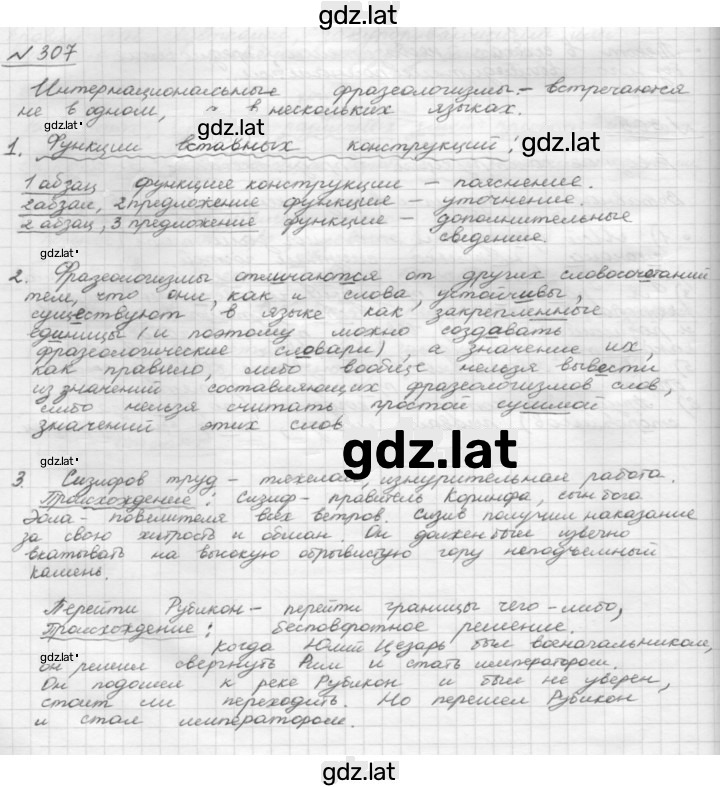 gdz.lat
№307
Интернациональные фразеологизмы - встречаются
не в одном, в нескольких языках.
gdz.lat
gdz.lat
gdz.lat
1. Функции вставных конструкций:
1 абзац функцие конструкции – пояснение.
2 абзац, 2 предложение функцие – уточнение.
2 абзац, 3 предложение функцие – дополнительные
сведение.
gdz.lat
2. Фразеологизмы отличаются от других словосочетаний
тем, что они, как и слова, устойчивы,
существуют в языке как закрепленные
единицы (и поэтому можно создавать
фразеологические словари), а значение их,
как правило, либо вообще нельзя вывести
из значений составляющих фразеологизмов слов,
либо нельзя считать простой суммой
значений этих слов
gdz.lat
gdz.lat
3. Сизифов труд – тяжелая, изнурительная работа.
Происхождение: Сизиф – правитель Коринфа, сын бога
Эола – повелителя всех ветров. Сизив получил наказание
за свою хитрость и обман. Он должен был извечно
вкатывать на высокую обрывистую гору неподъемный
камень.
Перейти Рубикон – перейти границы чего-либо,
Происхождение: бесповоротное решение.
Когда Юлий Цезарь был военачальником,
gdz.lat
он решил свергнуть Рим и стать императором.
Он подошел к реке Рубикон и был не уверен,
стоит ли переходить. Но перешел Рубикон
и стал императором.
gdz.lat